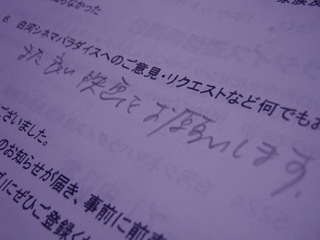 らなかった
6. 白河シネマパラダイスへのご意見・リクエストなど何でもお
また良い映画をお願いします。
ございました。
のお知らせが届き、事前に前売
ぜひご登録く